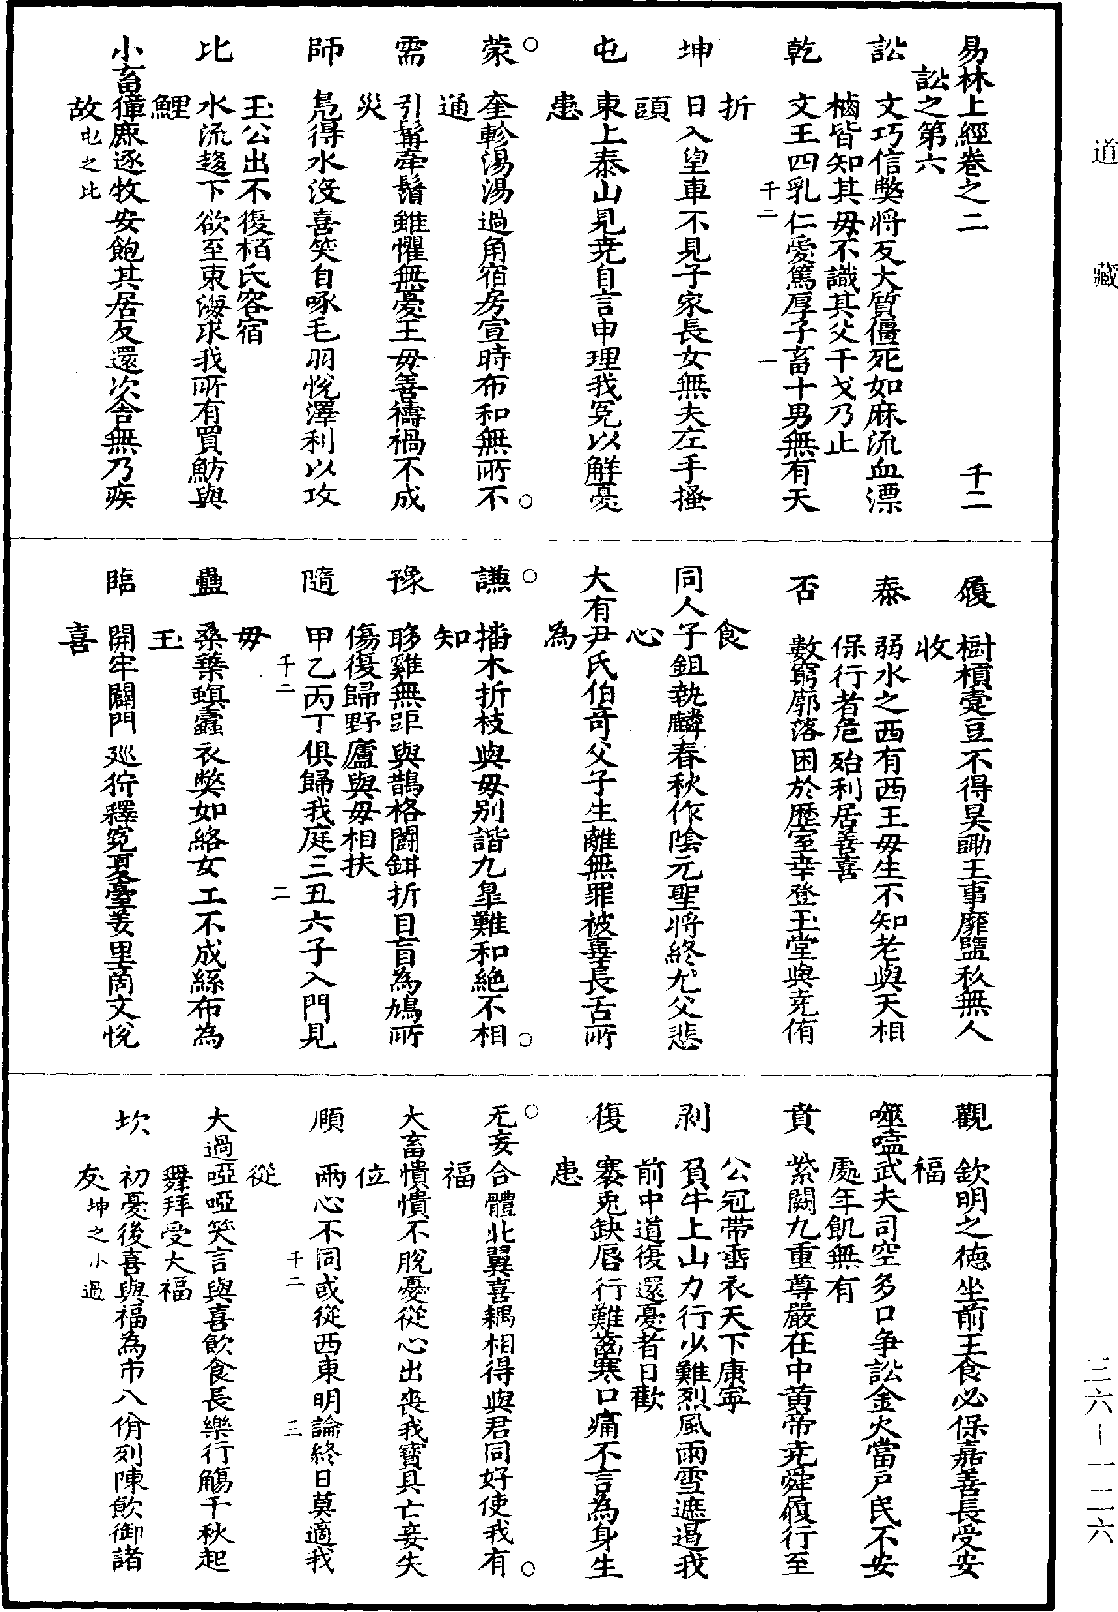 道藏
易林上經卷之二 千二
訟之第六
訟 文巧信獘將反大質僵死如麻流血漂
櫓皆知其母不識其父干戈乃止
乾 文王四乳仁愛篤厚子畜十男無有夭
折
千二 一
坤 日入望車不見子家長女無夫左手搔
頭
屯 東上泰山見堯自言申理我冤以解憂
患
蒙 奎軫湯湯過角宿房宣時布和無所不
通
需 引髯牽鬚雖懼無憂王母善禱禍不成
災
師 鳧得水沒喜笑自啄毛羽悅澤利以攻
玉公出不復栢氏客宿
比 水流趨下欲至東海求我所有買魴與
鯉
小畜 獐麃逐牧安飽其居反還次舍無乃疾
故 屯之比
履 樹樍壼豆不得昊鋤王事靡盬秋無人
收
泰 弱水之西有西王母生不知老與天相
保行者危殆利居善喜
否 數窮廓落困於歷室幸登玉堂與堯侑
食
同人 子鉏執麟春秋作陰元聖將終尤父悲
心
大有 尹氏伯奇父子生離無罪被辜長舌所
為
謙 播木折枝與母别諧九皐難和絶不相
知
豫 眵雞無距與鵲格鬬鉺折目盲為鳩所
傷復歸野廬與母相扶
隨 甲乙丙丁俱歸我庭三丑六子入門見
母
千二 二
蠱 桑葉螟蠹衣弊如絡女工不成絲布為
玉
臨 開牢闢門巡狩釋寃夏臺羑里啇文悅
喜
觀 欽明之德坐前王食必保嘉善長受安
福
噬嗑 武夫司空多口争訟金火當戶民不安
處年飢無有
賁 紫闕九重尊嚴在中黄帝堯舜履行至
公冠帶垂衣天下康寧
剥 負牛上山力行少難烈風雨雪遮遏我
前中道復還憂者日歡
復 褰兎缺唇行難齒寒口痛不言為身生
患
无妄 合體北翼喜耦相得與君同好使我有
福
大畜 憒憒不脫憂從心出喪我寶貝亡妾失
位
頤 兩心不同或從西東明論終日莫適我
從
千二 三
大過 啞啞笑言與喜飲食長樂行觴千秋起
舞拜受大福
坎 初憂後喜與福為市八佾列陳飲御諸
友 坤之小過
三六—一二六